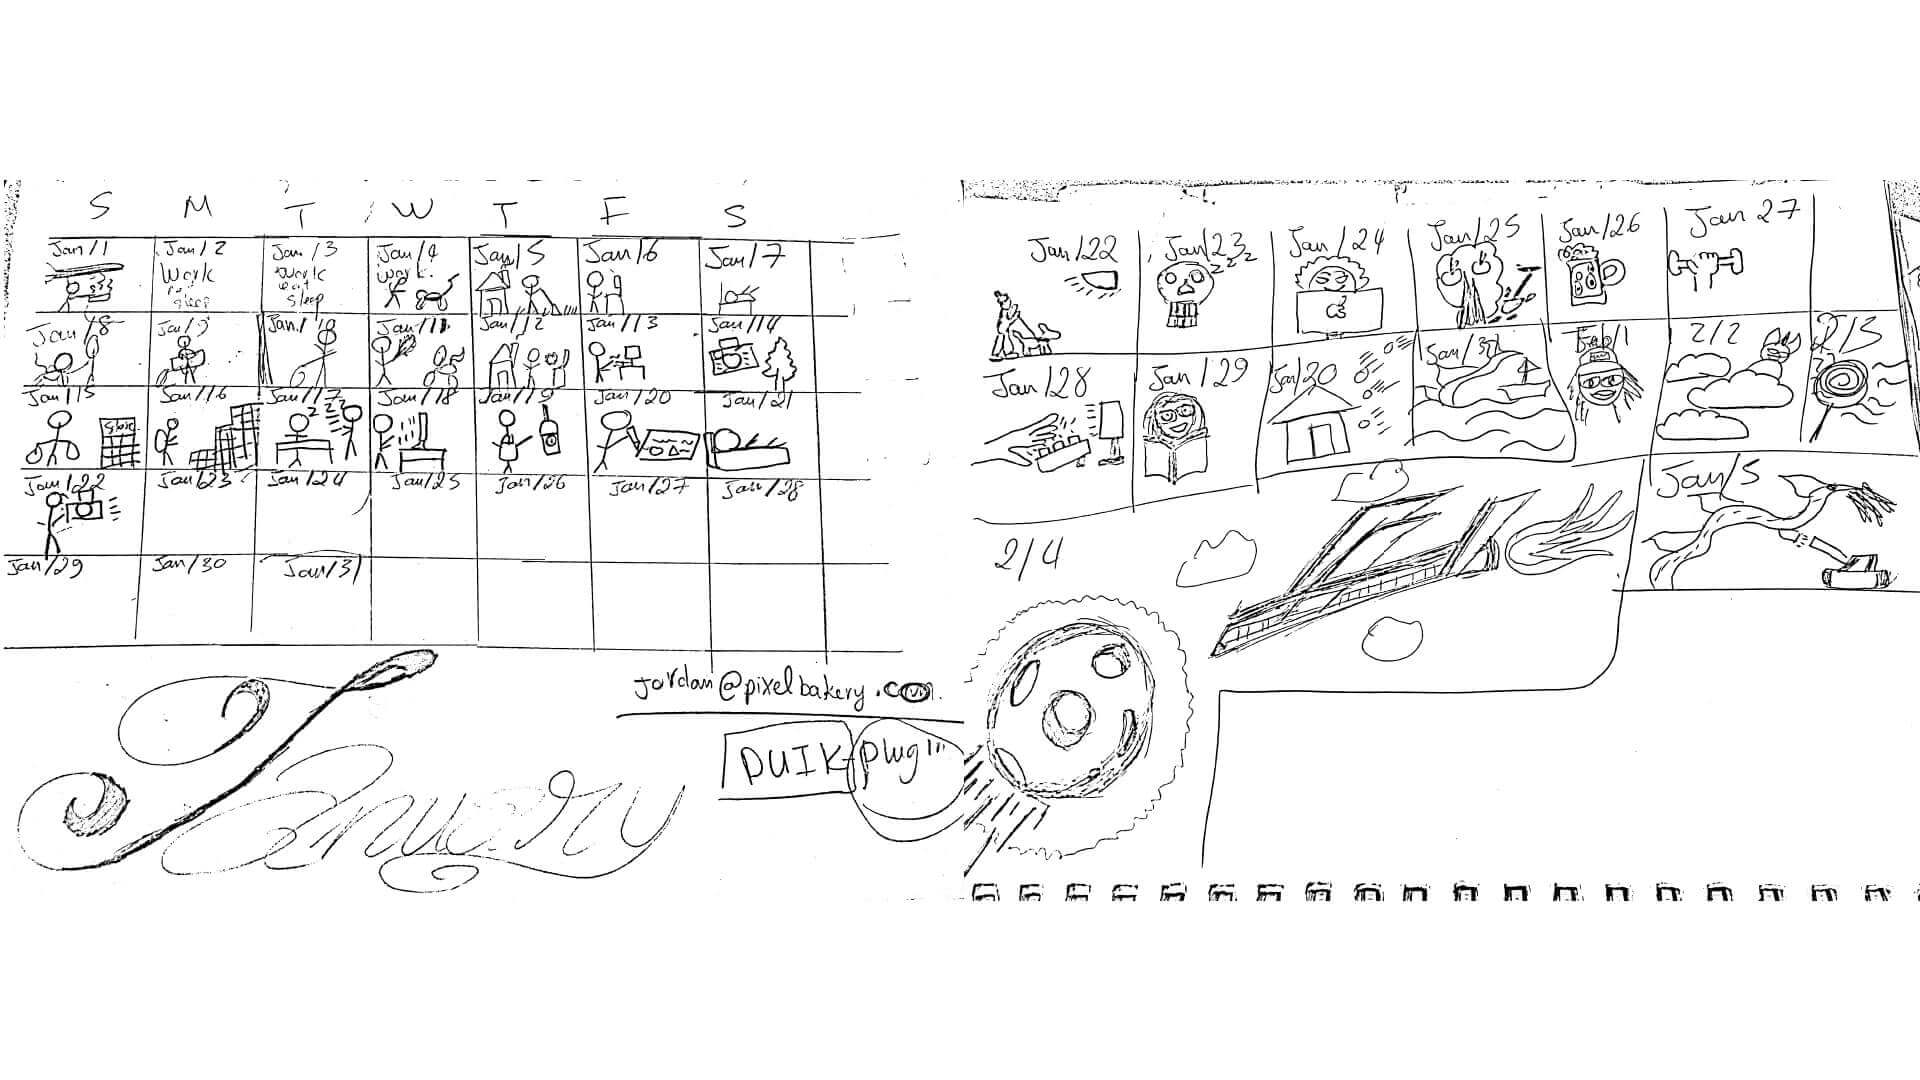 S M T W T F S
Jan/1 Jan/2 Jan/3 Jan/4 Jan/5 Jan/6 Jan/7
Work Work Work
eat
sleep sleep
Jan/8 Jan/9 Jan/10 Jan/11 Jan/12 Jan/13 Jan/14
Jan/15 Jan/16 Jan/17 Jan/18 Jan/19 Jan/20 Jan/21
zzz
Jan/22 Jan/23 Jan/24 Jan/25 Jan/26 Jan/27 Jan/28
Jan/29 Jan/30 Jan/31
January
jordan@pixelbakery.com
DUIK-Plug
Jan/22 Jan/23 Jan/24 Jan/25 Jan/26 Jan 27
zzz
Jan/28 Jan/29 Jan/30 Jan/31 Feb/1 2/2 2/3
2/4 Jan/5